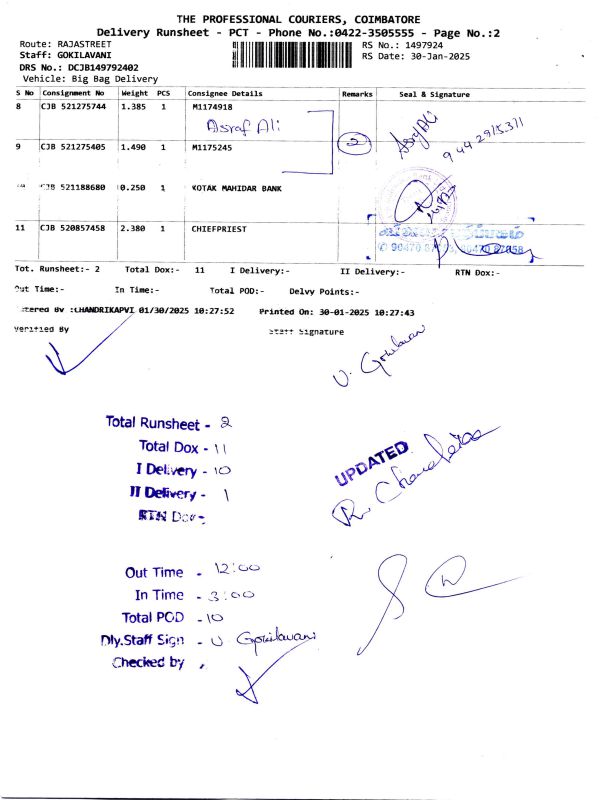 THE PROFESSIONAL COURIERS, COIMBATORE
Delivery Runsheet - PCT - Phone No.:0422-3505555 - Page No.:2
Route: RAJASTREET
RS No.: 1497924
Staff: GOKILAVANI
RS Date: 30-Jan-2025
DRS No.: DCJB149792402
Vehicle: Big Bag Delivery
S No Consignment No Weight PCS Consignee Details Remarks Seal & Signature
8 CJB 521275744 1.385 1 M1174918
Asraf Ali
Asraf Ali
9 CJB 521275405 1.490 1 M1175245
2
CJB 521188680 0.250 1 KOTAK MAHIDAR BANK
11 CJB 520857458 2.380 1 CHIEFPRIEST
Tot. Runsheet:- 2 Total Dox:- 11 I Delivery:- II Delivery:- RTN Dox:-
Out Time:- In Time:- Total POD:- Delvy Points:-
tered By :CHANDRIKAPVI 01/30/2025 10:27:52 Printed On: 30-01-2025 10:27:43
Verified By Staff Signature
U. Gokilavani
Total Runsheet - 2
Total Dox - 11
I Delivery - 10
II Delivery - 1
RTN Dox -
UPDATED
Out Time - 12:00
In Time - 3:00
Total POD - 10
Dly.Staff Sign - U Gokilavani
Checked by -